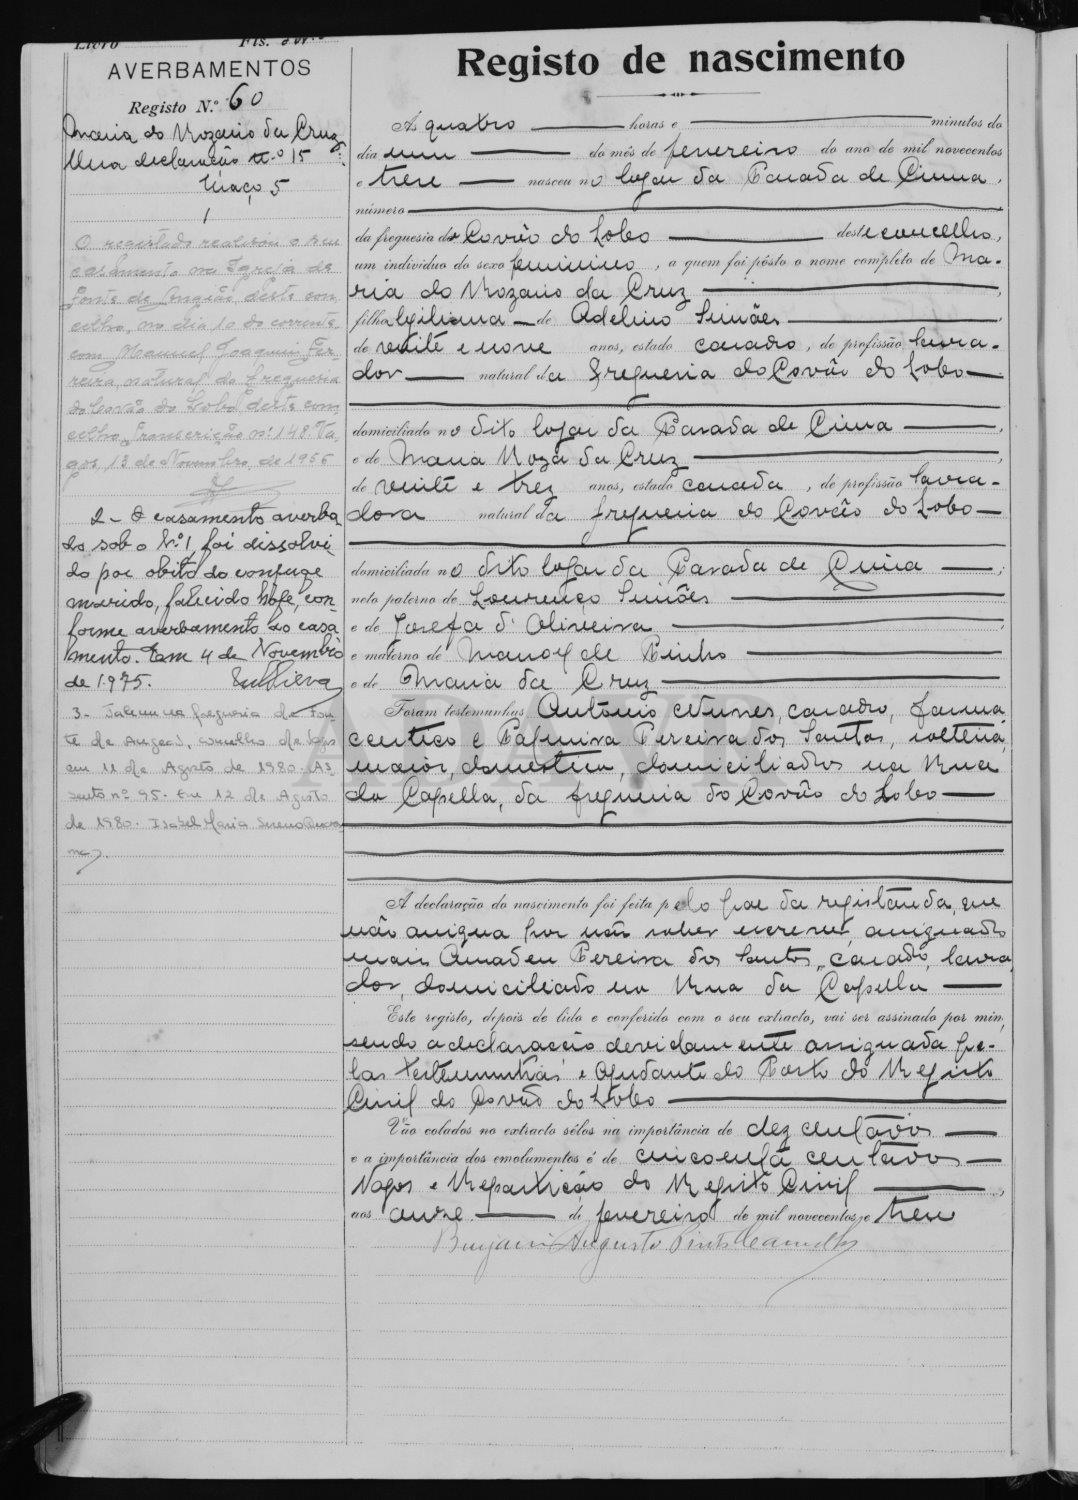 Livro Fls.
AVERBAMENTOS
Registo N.º 60
Maria do Rozario da Cruz
Uma declaração n.º 15
Maço 5
1
O registado realizou o seu
casamento na Igreja de
Fonte de Angeão, deste con
celho, no dia 10 do corrente,
com Manuel Joaquim Fer
reira, natural da freguesia
do Covão do Lobo, deste con
celho. Transcrição n.º 148. Va
gos, 13 de Novembro de 1956
2 - O casamento averba
do sob o N.º 1, foi dissolvi
do por obito do conjuge
marido, falecido hoje, con
forme averbamento ao casa
mento. Em 4 de Novembro
de 1975.
3 - Faleceu na freguesia de Fon
te de Angeão, concelho de Vagos
em 11 de Agosto de 1980. As
sento nº 95. Em 12 de Agosto
de 1980. Isabel Maria
Registo de nascimento
Ás quatro horas e minutos do
dia um do mês de fevereiro do ano de mil novecentos
e treze nasceu no logar da Parada de Cima,
número
da freguesia do Covão do Lobo deste concelho,
um indivíduo do sexo feminino, a quem foi pôsto o nome completo de Ma-
ria do Rozario da Cruz
filha legitima de Adelino Simões
de vinte e nove anos, estado casado, de profissão lavra-
dor natural da freguesia do Covão do Lobo
domiciliado no dito logar da Parada de Cima
e de Maria Roza da Cruz
de vinte e trez anos, estado casada, de profissão lavra-
dora natural da freguesia do Covão do Lobo
domiciliada no dito logar da Parada de Cima
neto paterno de Lourenço Simões
e de Josefa d'Oliveira
e materno de Manoel de Pinho
e de Maria da Cruz
Foram testemunhas Antonio Nunes, casado, farma
ceutico e Palmira Pereira dos Santos, solteira,
maior, domestica, domiciliados na Rua
da Capella, da freguesia do Covão do Lobo
A declaração do nascimento foi feita pelo pae da registanda, que
não assigna por não saber escrever, assignado
mais Amadeu Pereira dos Santos, casado, lavra
dor, domiciliado na Rua da Capella
Este registo, depois de lido e conferido com o seu extracto, vai ser assinado por mim,
sendo a declaração devidamente assignada pe-
las testemunhas e Ajudante do Posto do Registo
Civil do Covão do Lobo
Vão colados no extracto sêlos na importância de dez centavos
e a importância dos emolumentos é de cincoenta centavos
Vagos e Repartição do Registo Civil
aos onze de fevereiro de mil novecentos e treze
Benjamin Augusto Pinto Camello
ADAVR